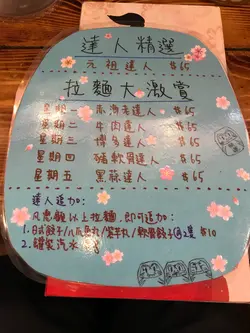 達人精選
元祖達人 $65
拉麵大激賞
星期一 赤海老達人 $65
星期二 牛肉達人 $65
星期三 博多達人 $65
星期四 豬軟骨達人 $65
星期五 黑蒜達人 $65
達人追加:
凡惠顧以上拉麵,即可追加:
1.日式餃子/八爪魚丸/芝士丸/軟骨餃子@2隻 $10
2.罐裝汽水